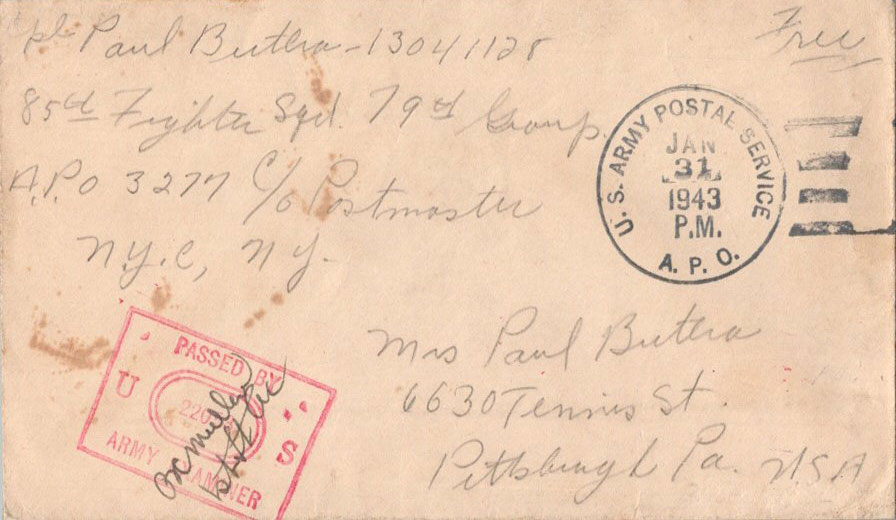 Cpl Paul Butera - 13041128
Free
85th Fighter Sqd. 79th Group.
A.P.O 3277 c/o Postmaster
N.Y.C, N.Y.
U.S. ARMY POSTAL SERVICE
JAN
31
1943
P.M.
A.P.O.
PASSED BY
U S
ARMY EXAMINER
Mrs Paul Butera
6630 Tennis St.
Pittsburgh Pa. USA